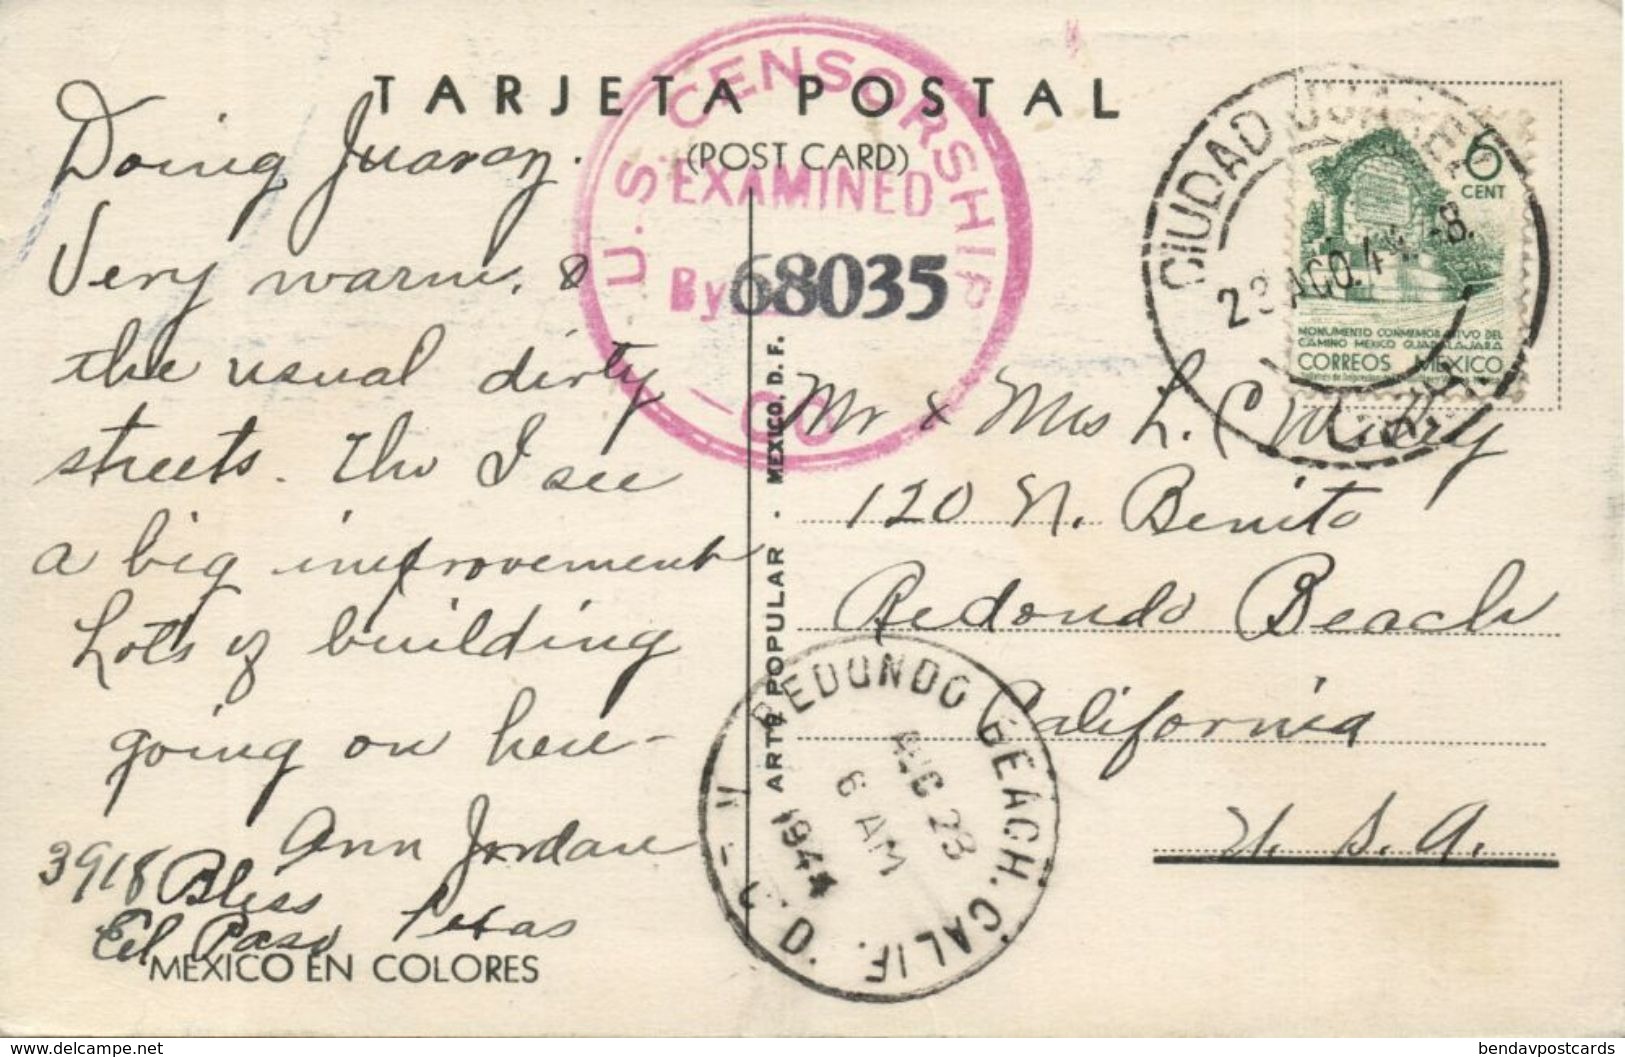 TARJETA POSTAL
(POST CARD)
Doing Juaraz.
Very warm. &
the usual dirty
streets. Tho I see
a big improvement
Lots of building
going on here –
Ann Jordan
3918 Bliss
El Paso Texas
MEXICO EN COLORES
U.S. CENSORSHIP
EXAMINED
By 68035
ARTE POPULAR . MEXICO, D. F.
CIUDAD JUAREZ
AGO. 44 -8.
6
CENT
MONUMENTO CONMEMORATIVO DEL
CAMINO MEXICO GUADALAJARA
CORREOS MEXICO
Mr & Mrs L. C
120 N. Benito
Redondo Beach
California
U. S. A.
REDONDO BEACH, CALIF.
AUG 28
6 AM
1944
www.delcampe.net
bendavpostcards